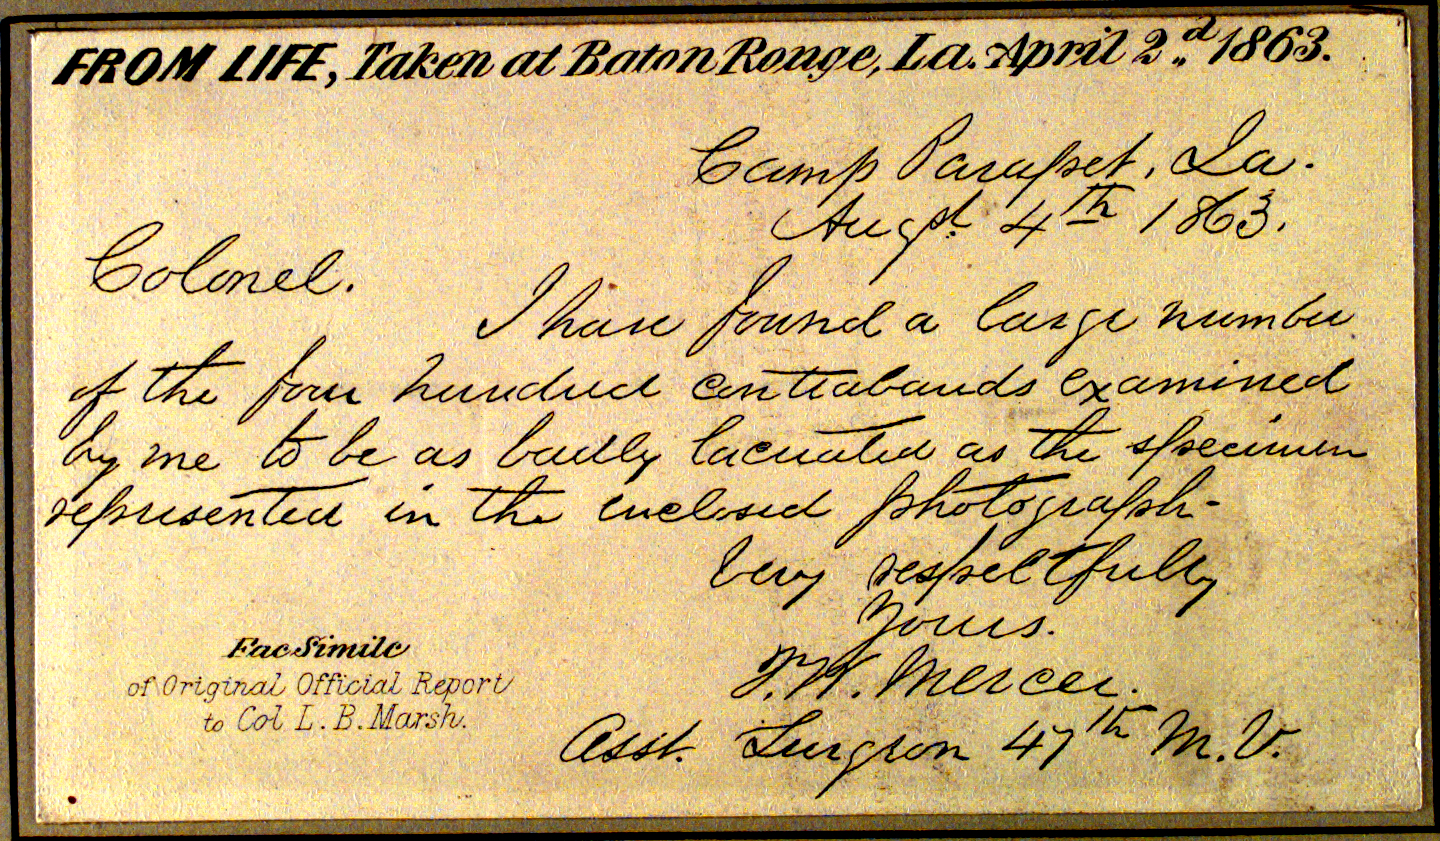 FROM LIFE, Taken at Baton Rouge, La. April 2.d 1863.
Camp Parapet, La.
Augst. 4th 1863.
Colonel.
I have found a large number
of the four hundred contrabands examined
by me to be as badly lacerated as the specimen
represented in the enclosed photograph-
Very respectfully
Yours.
J. W. Mercer.
Asst. Surgeon 47th M. V.
Fac Simile
of Original Official Report
to Col L. B. Marsh.